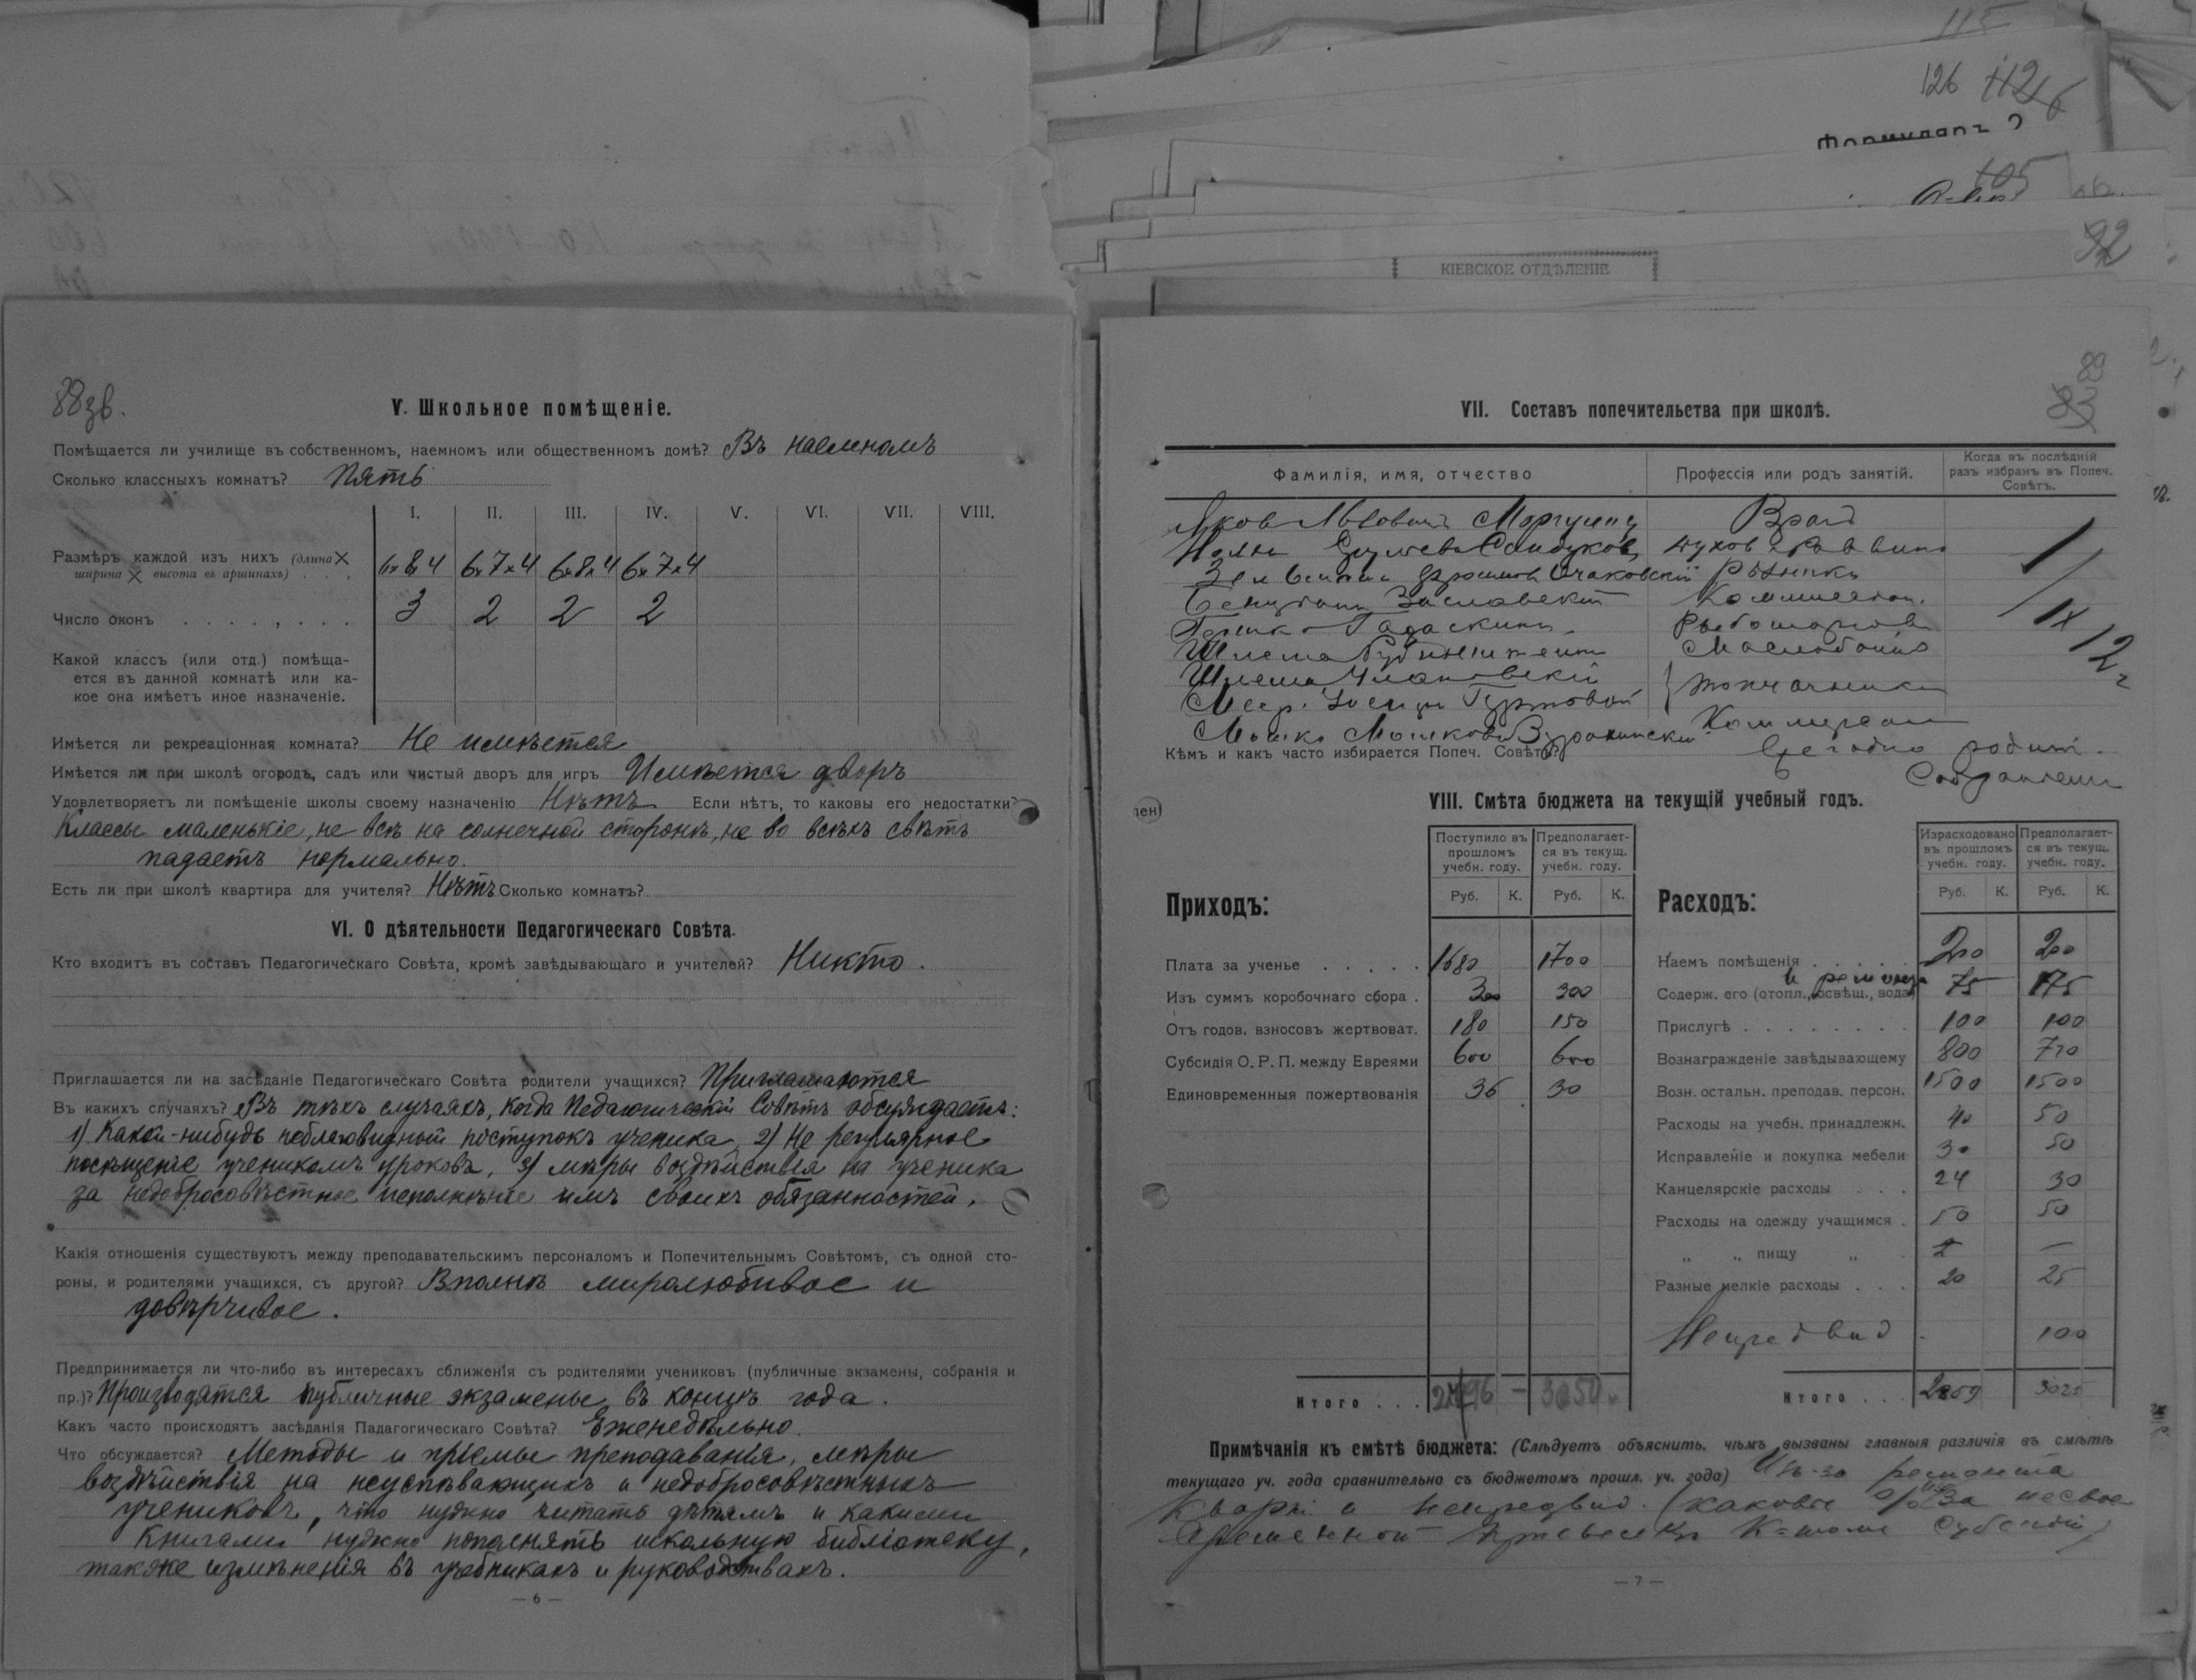 115
126 112б
Формуляръ 2
105
92
КІЕВСКОЕ ОТДѢЛЕНІЕ
88зв.
V. Школьное помѣщеніе.
Помѣщается ли училище въ собственномъ, наемномъ или общественномъ домѣ? Въ наемномъ
Сколько классныхъ комнатъ? Пять
I. II. III. IV. V. VI. VII. VIII.
Размѣръ каждой изъ нихъ (длина X
ширина X высота въ аршинахъ) . . . 6х8х4 6х7х4 6х8х4 6х7х4
Число оконъ . . . . , . . . 3 2 2 2
Какой классъ (или отд.) помѣща-
ется въ данной комнатѣ или ка-
кое она имѣетъ иное назначеніе.
Имѣется ли рекреаціонная комната? Не имѣется
Имѣется ли при школѣ огородъ, садъ или чистый дворъ для игръ Имѣется дворъ
Удовлетворяетъ ли помѣщеніе школы своему назначенію Нѣтъ Если нѣтъ, то каковы его недостатки?
Классы маленькіе, не всѣ на солнечной сторонѣ, не во всѣхъ свѣтъ
падаетъ нормально.
Есть ли при школѣ квартира для учителя? Нѣтъ Сколько комнатъ?
VI. О дѣятельности Педагогическаго Совѣта.
Кто входитъ въ составъ Педагогическаго Совѣта, кромѣ завѣдывающаго и учителей? Никто.
Приглашается ли на засѣданіе Педагогическаго Совѣта родители учащихся? Приглашаются
Въ какихъ случаяхъ? Въ тѣхъ случаяхъ, когда Педагогическій Совѣтъ обсуждаетъ:
1) Какой-нибудь неблаговидный поступокъ ученика, 2) Не регулярное
посѣщеніе ученикомъ уроковъ, 3) мѣры воздѣйствія на ученика
за недобросовѣстное исполнѣніе имъ своихъ обязанностей.
Какія отношенія существуютъ между преподавательскимъ персоналомъ и Попечительнымъ Совѣтомъ, съ одной сто-
роны, и родителями учащихся, съ другой? Вполнѣ миролюбивое и
довѣрчивое.
Предпринимается ли что-либо въ интересахъ сближенія съ родителями учениковъ (публичные экзамены, собранія и
пр.)? Производятся публичные экзамены въ концѣ года.
Какъ часто происходятъ засѣданія Падагогическаго Совѣта? Еженедѣльно.
Что обсуждается? Методы и пріемы преподаванія, мѣры
воздѣйствія на неуспѣвающихъ и недобросовѣстныхъ
учениковъ, что нужно читать дѣтямъ и какими
книгами нужно пополнять школьную библіотеку,
также измѣненія въ учебникахъ и руководствахъ.
— 6 —
89
VII. Составъ попечительства при школѣ.
Фамилія, имя, отчество Профессія или родъ занятій. Когда въ послѣдній
разъ избранъ въ Попеч.
Совѣтъ.
Яковъ Львовичъ Моргулисъ Врачъ
духов. раввинъ
Очаковскій Рѣзникъ
Заславскій
Шлема
Шлема
Мошко Мошковъ Коммерсант
1/IX 12 г
Кѣмъ и какъ часто избирается Попеч. Совѣтъ? Ежегодно родит.
Собраніемъ
VIII. Смѣта бюджета на текущій учебный годъ.
Поступило въ прошломъ учебн. году. Предполагает-ся въ текущ. учебн. году. Израсходовано въ прошломъ учебн. году. Предполагает-ся въ текущ. учебн. году.
Руб. К. Руб. К. Руб. К. Руб. К.
Приходъ: Расходъ:
Плата за ученье . . . . . 1680 1700
Изъ суммъ коробочнаго сбора . 300 300
Отъ годов. взносовъ жертвоват. 180 150
Субсидія О. Р. П. между Евреями 600 600
Единовременныя пожертвованія 36 30
Итого . . . 2796 — 3050
Наемъ помѣщенія . . . . . 200 200
и ремонтъ
Содерж. его (отопл., освѣщ., вода) 75 175
Прислугѣ . . . . . . . . 100 100
Вознагражденіе завѣдывающему 800 720
Возн. остальн. преподав. персон. 1500 1500
Расходы на учебн. принадлежн. 40 50
Исправленіе и покупка мебели 30 50
Канцелярскіе расходы . . . 24 30
Расходы на одежду учащимся . 50 50
„ „ пищу „ —
Разные мелкіе расходы . . . 20 25
Непредвид 100
Итого . . . 2859 3025
Примѣчанія къ смѣтѣ бюджета: (Слѣдуетъ объяснить, чѣмъ вызваны главныя различія въ смѣтѣ
текущаго уч. года сравнительно съ бюджетомъ прошл. уч. года) Изъ-за ремонта
и непредвид. (каковы % за несвое
временной К-томъ субсидій)
— 7 —